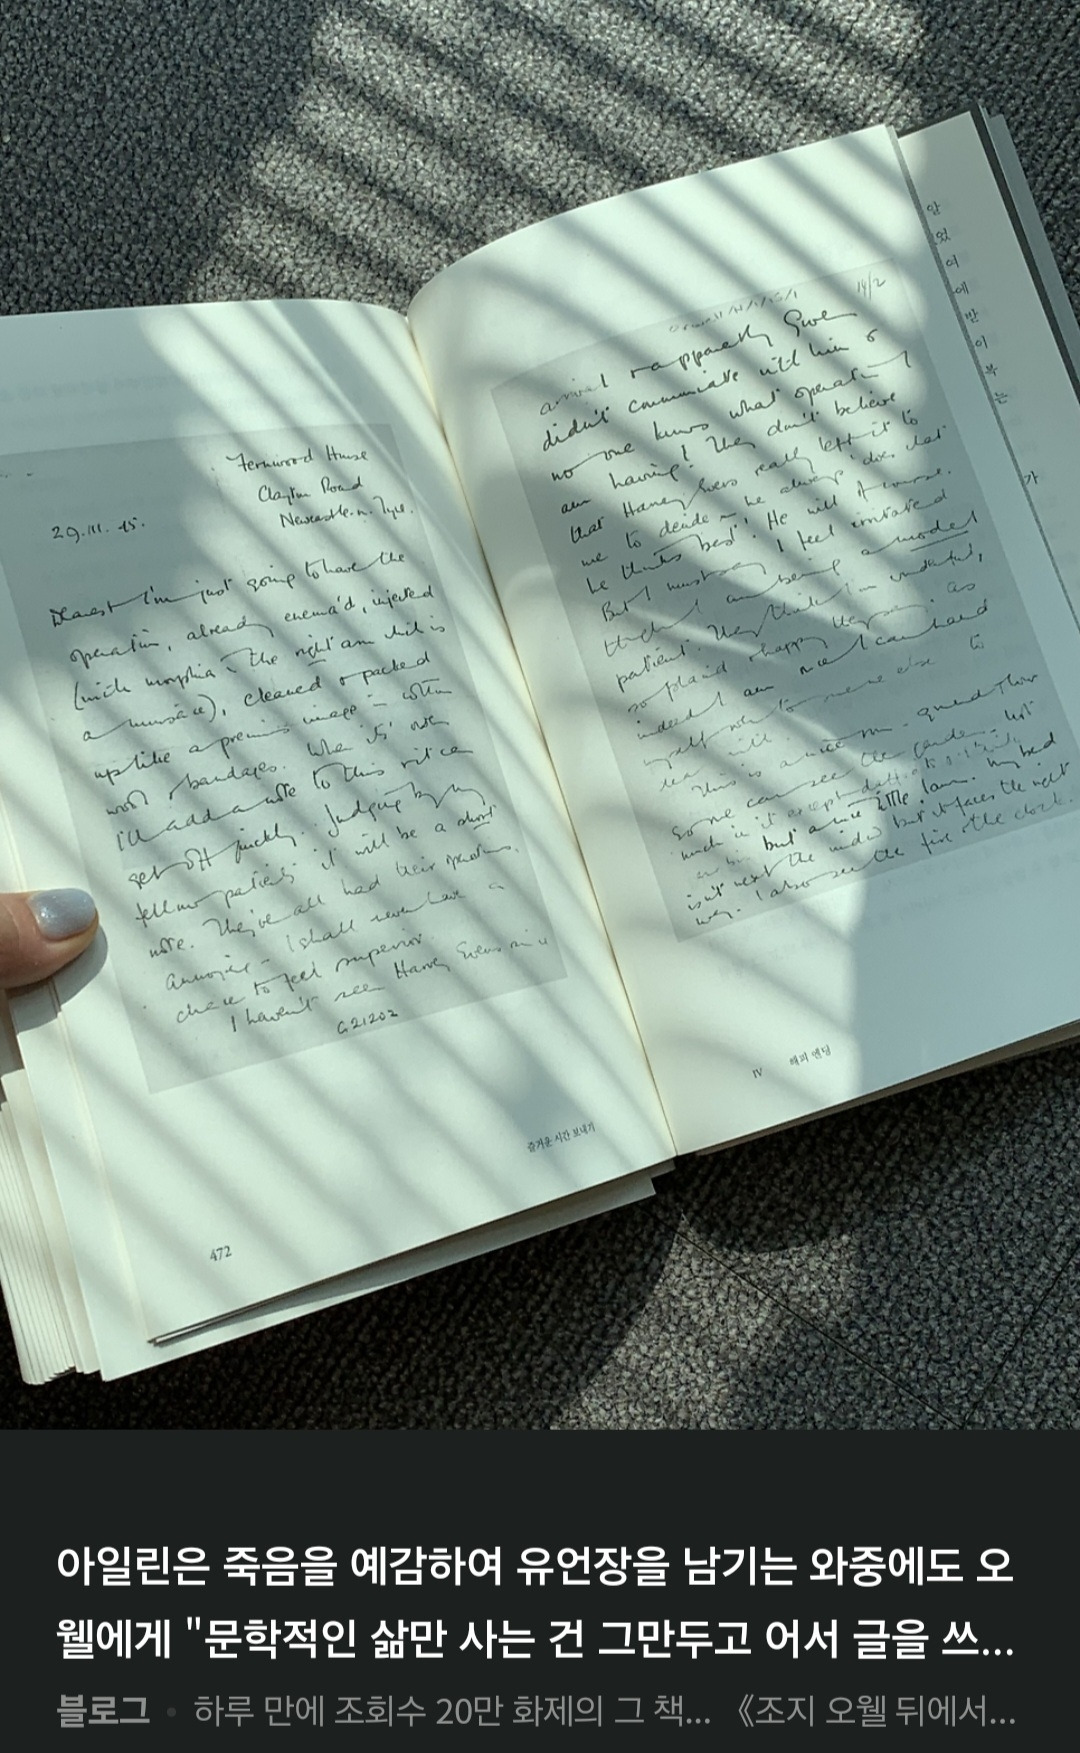 Fernwood House
Clayton Road
Newcastle.n.Tyne.
29.III.45.
Dearest I'm just going to have the
operation, already enema'd, injected
(with morphia in the right arm which is
a nuisance), cleaned & packed
up like a precious image in cotton
wool & bandages. When it's over
I'll add a note to this & it can
get off quickly. Judging by my
fellow patients it will be a short
note. They've all had their operations.
Annoying - I shall never have a
chance to feel superior.
I haven't seen Harvey Evers since
G21202
즐거운 시간 보내기
472
14/2
arrival & apparently Gwen
didn't communicate with him &
no one knows what operation I
am having! They don't believe
that Harvey Evers really left it to
me to decide - he always 'does what
he thinks best'! He will of course.
But I must say I feel irritated
though I am being a model
patient. They think I'm wonderful,
so placid & happy they say. As
indeed I am once I can hand
myself over to someone else to
deal with.
This is a nice room - ground floor
so one can see the garden. Not
much in it except daffodils
but a nice little lawn. My bed
isn't next the window but it faces the right
way. I also see the fire & the clock.
IV 해피 엔딩
알
았
여
에
반
이
부
는
가
아일린은 죽음을 예감하여 유언장을 남기는 와중에도 오
웰에게 "문학적인 삶만 사는 건 그만두고 어서 글을 쓰...
블로그 • 하루 만에 조회수 20만 화제의 그 책... 《조지 오웰 뒤에서...